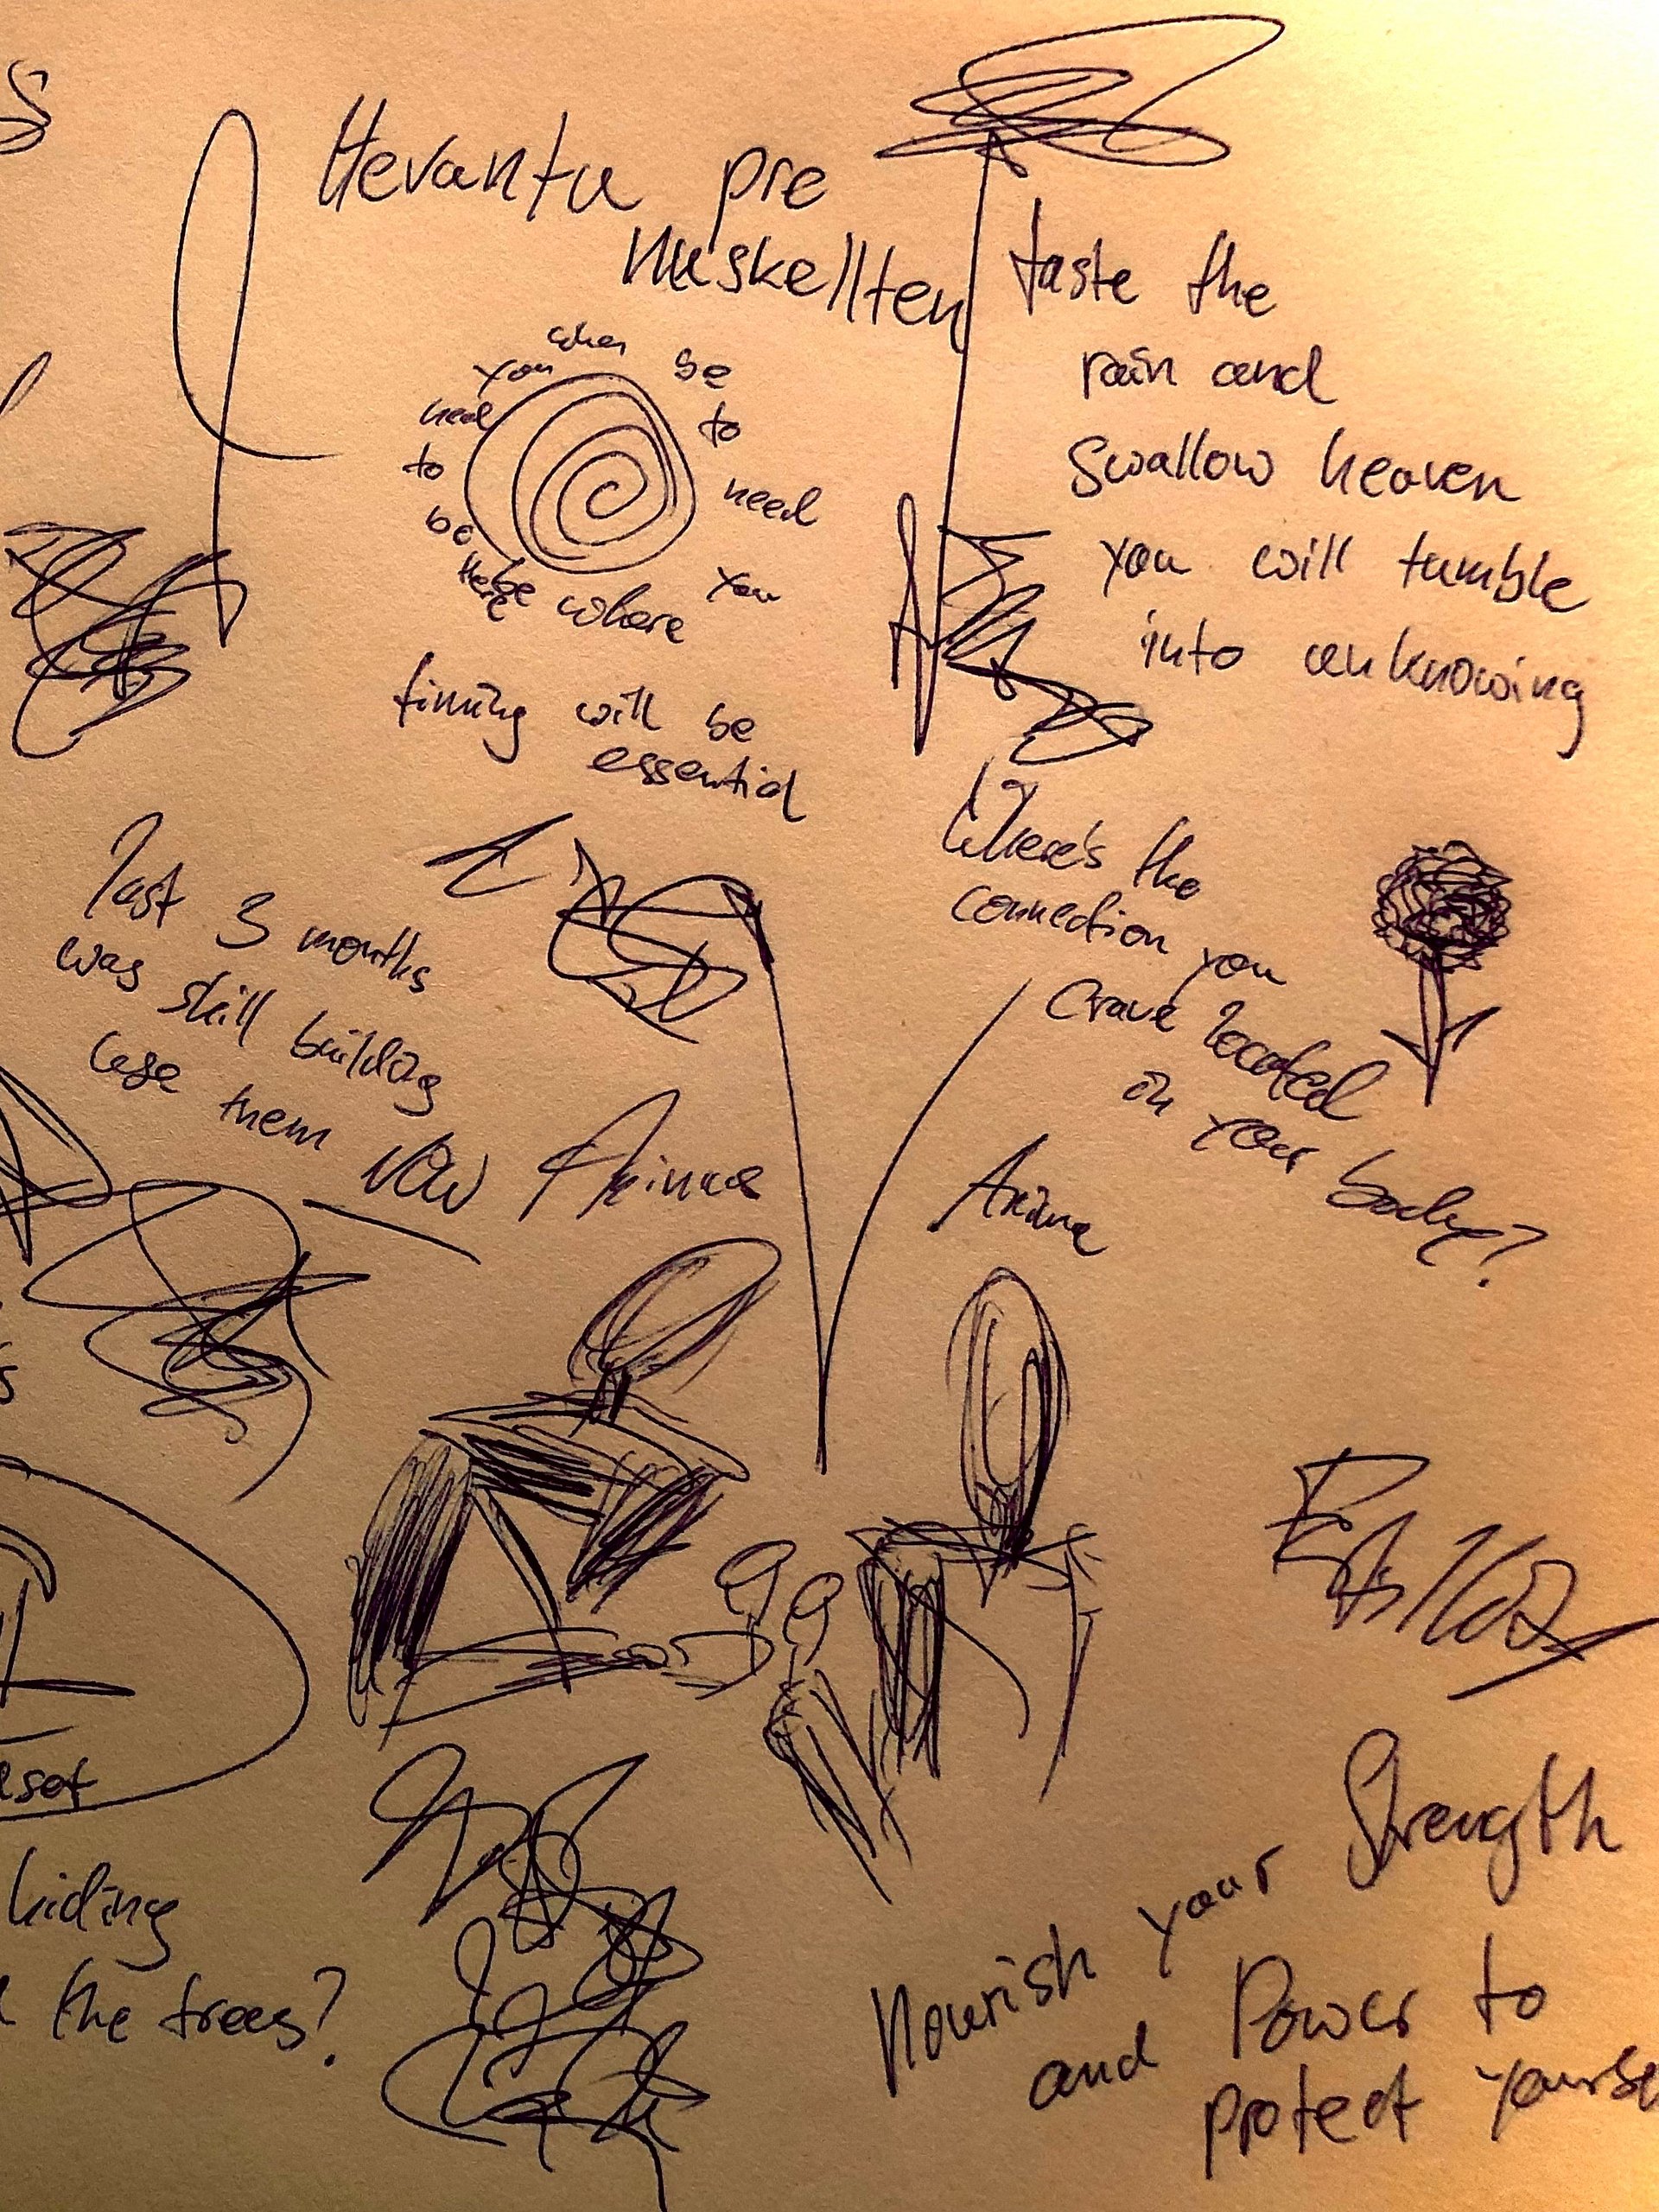 Hevantu pre
Muskellten
taste the
rain and
Swallow heaven
you will tumble
into unknowing
when
you
need
to
be
where
you
need
to
be
timing will be
essential
last 3 months
was skill building
use them NOW
Where's the
connection you
Crave located
in your body?
Anima
hiding
the trees?
Nourish your Strength
and Power to
protect yourse